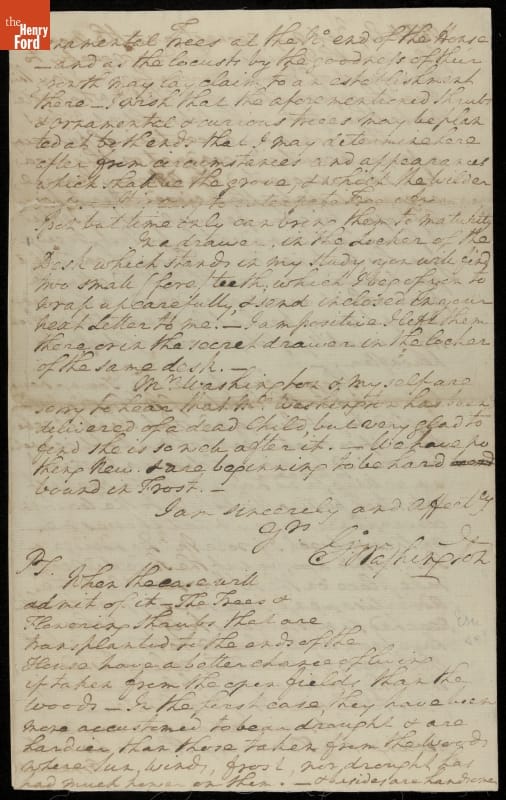 the
Henry
Ford
rnamental Trees at the No. end of the House
— and as the locusts by the goodness of their
growth may lay claim to an establishment
there — I wish that the aforementioned shrubs
& ornamental & curious trees may be plan
ted at both ends that I may determine here
after from circumstances and appearances
which shall be the grove, & which the wilder
ness. — It is easy to extirpate Trees from
any spot but time only can bring them to maturity
In a drawer, in the Locker of the
Desk which stands in my Study you will find
two small (fore) teeth, which I beg of you to
wrap up carefully, & send inclosed in your
next Letter to me. — I am positive I left them
there or in the secret drawer in the locker
of the same desk. —
Mrs. Washington & myself are
sorry to hear that Mrs. Washington has been
delivered of a dead Child, but very glad to
find she is so well after it. — We have no
thing New. & are beginning to be hard
bound in Frost. —
I am sincerely and affectly
Yrs
Go: Washington
PS.
When the case will
admit of it — The Trees &
Flowering shrubs that are
transplanted to the ends of the
House have a better chance of living
if taken from the open fields than the
woods — In the first case they have been
more accustomed to bear draught & are
hardier, than those taken from the Woods
where Sun, Wind, frost, nor draught has
had much power on them. — & besides are handsomer